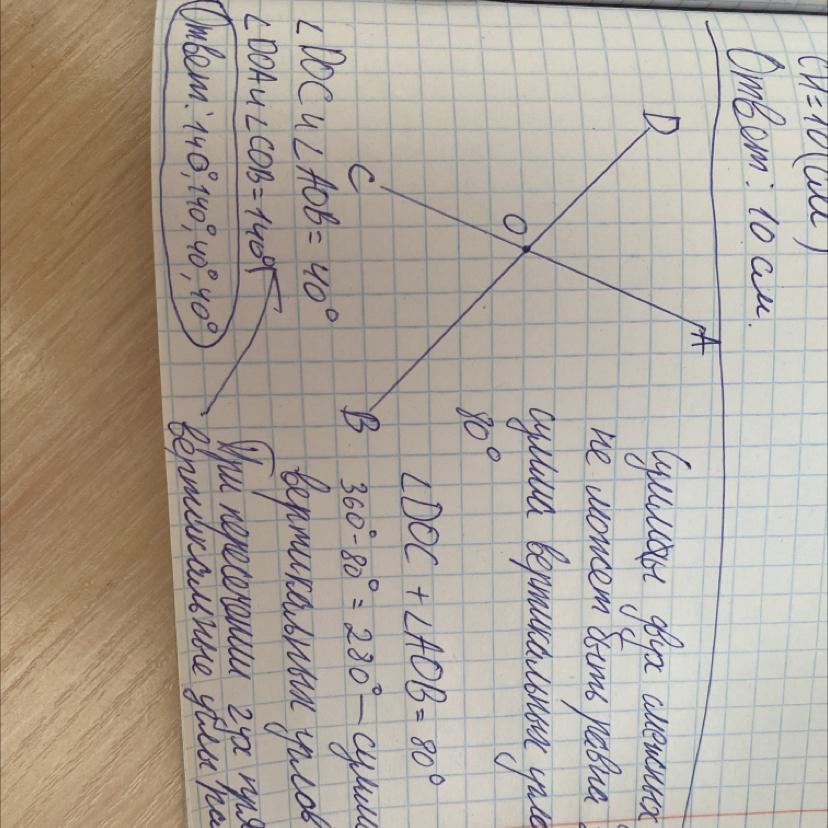 СН=10(см)
Ответ: 10 см.
D
A
O
C
B
Сумма двух смежных
не может быть равна
сумма вертикальных
80°
∠DOC + ∠AOB = 80°
360°-80° = 280° —
вертикальных углов
При двух
вертикальные углы
∠DOC и ∠AOB = 40°
∠DOA и ∠COB = 140°
Ответ: 140°, 140°, 40°, 40°